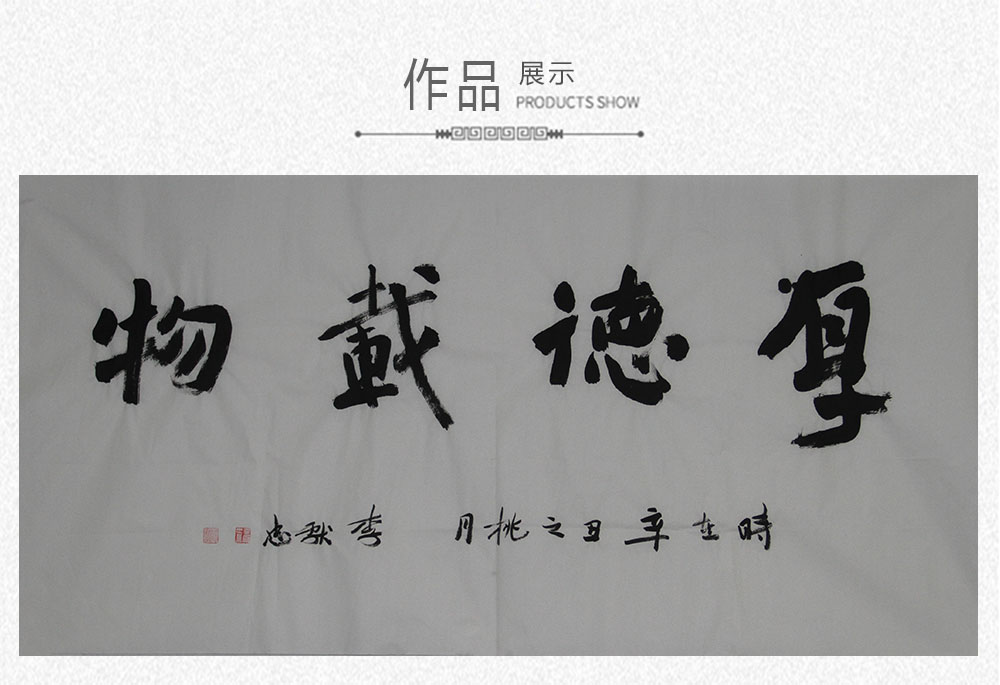 作品 展示
PRODUCTS SHOW
厚德載物
時在辛丑之桃月 李秋忠